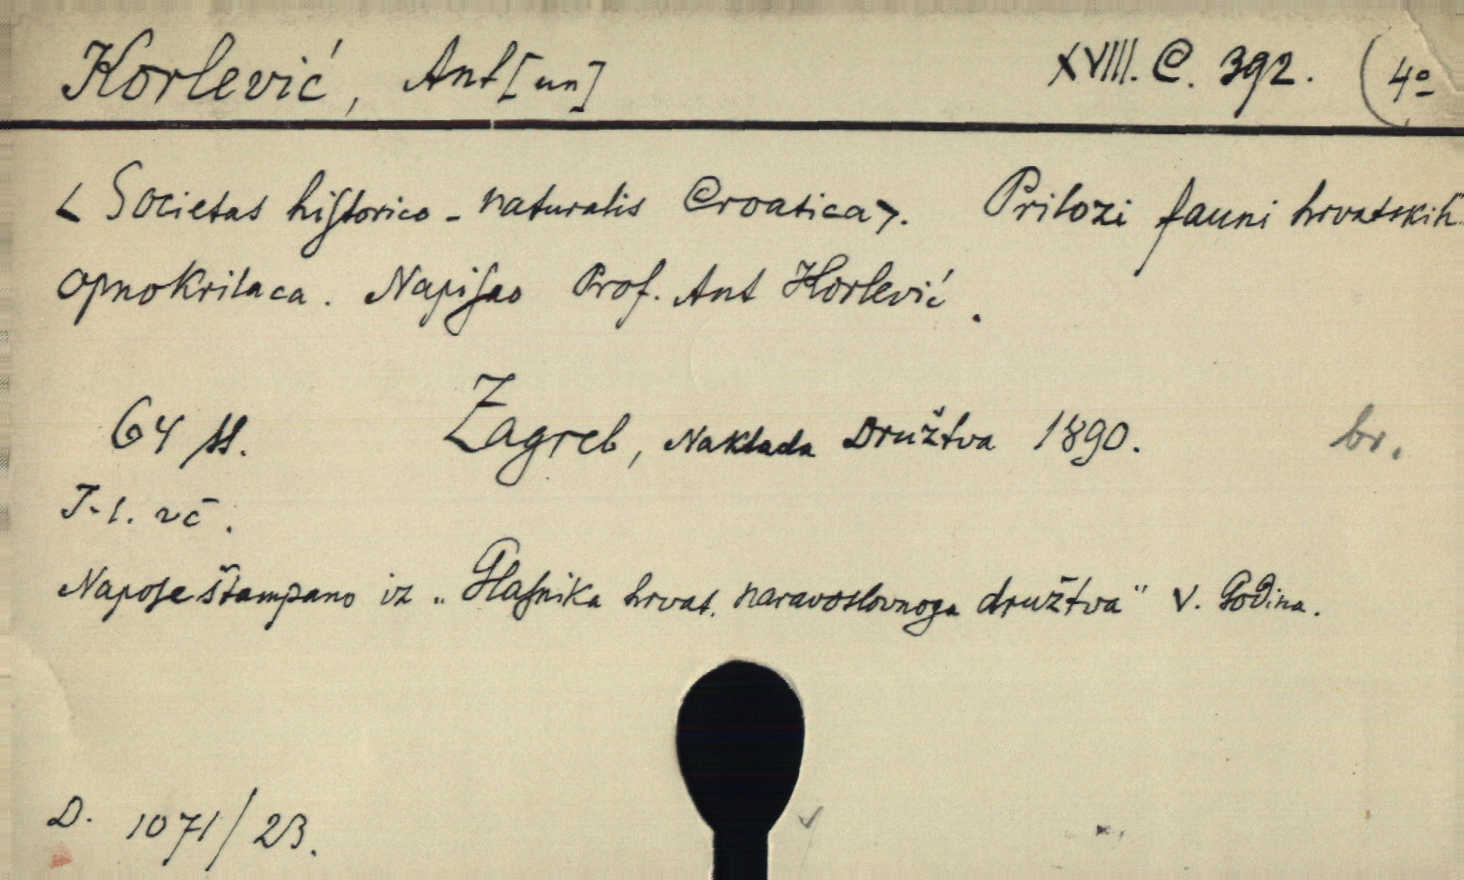 Korlević, Ant[un] XVIII. C. 392. (4º
<Societas historico-naturalis Croatica>. Prilozi fauni hrvatskih
opnokrilaca. Napisao Prof. Ant Korlević.
64 ss. Zagreb, Naklada Družtva 1890. br.
Napose štampano iz „Glasnika hrvat. naravoslovnoga družtva" V. Godina.
D. 1071/23.